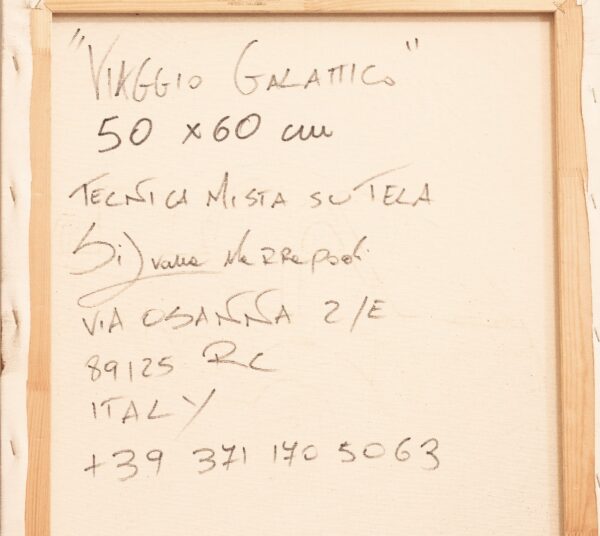 "VIAGGIO GALATTICO"
50 x 60 cm
TECNICA MISTA SU TELA
Silvana Marrapodi
VIA OSANNA 2/E
89125 RC
ITALY
+39 371 170 5063